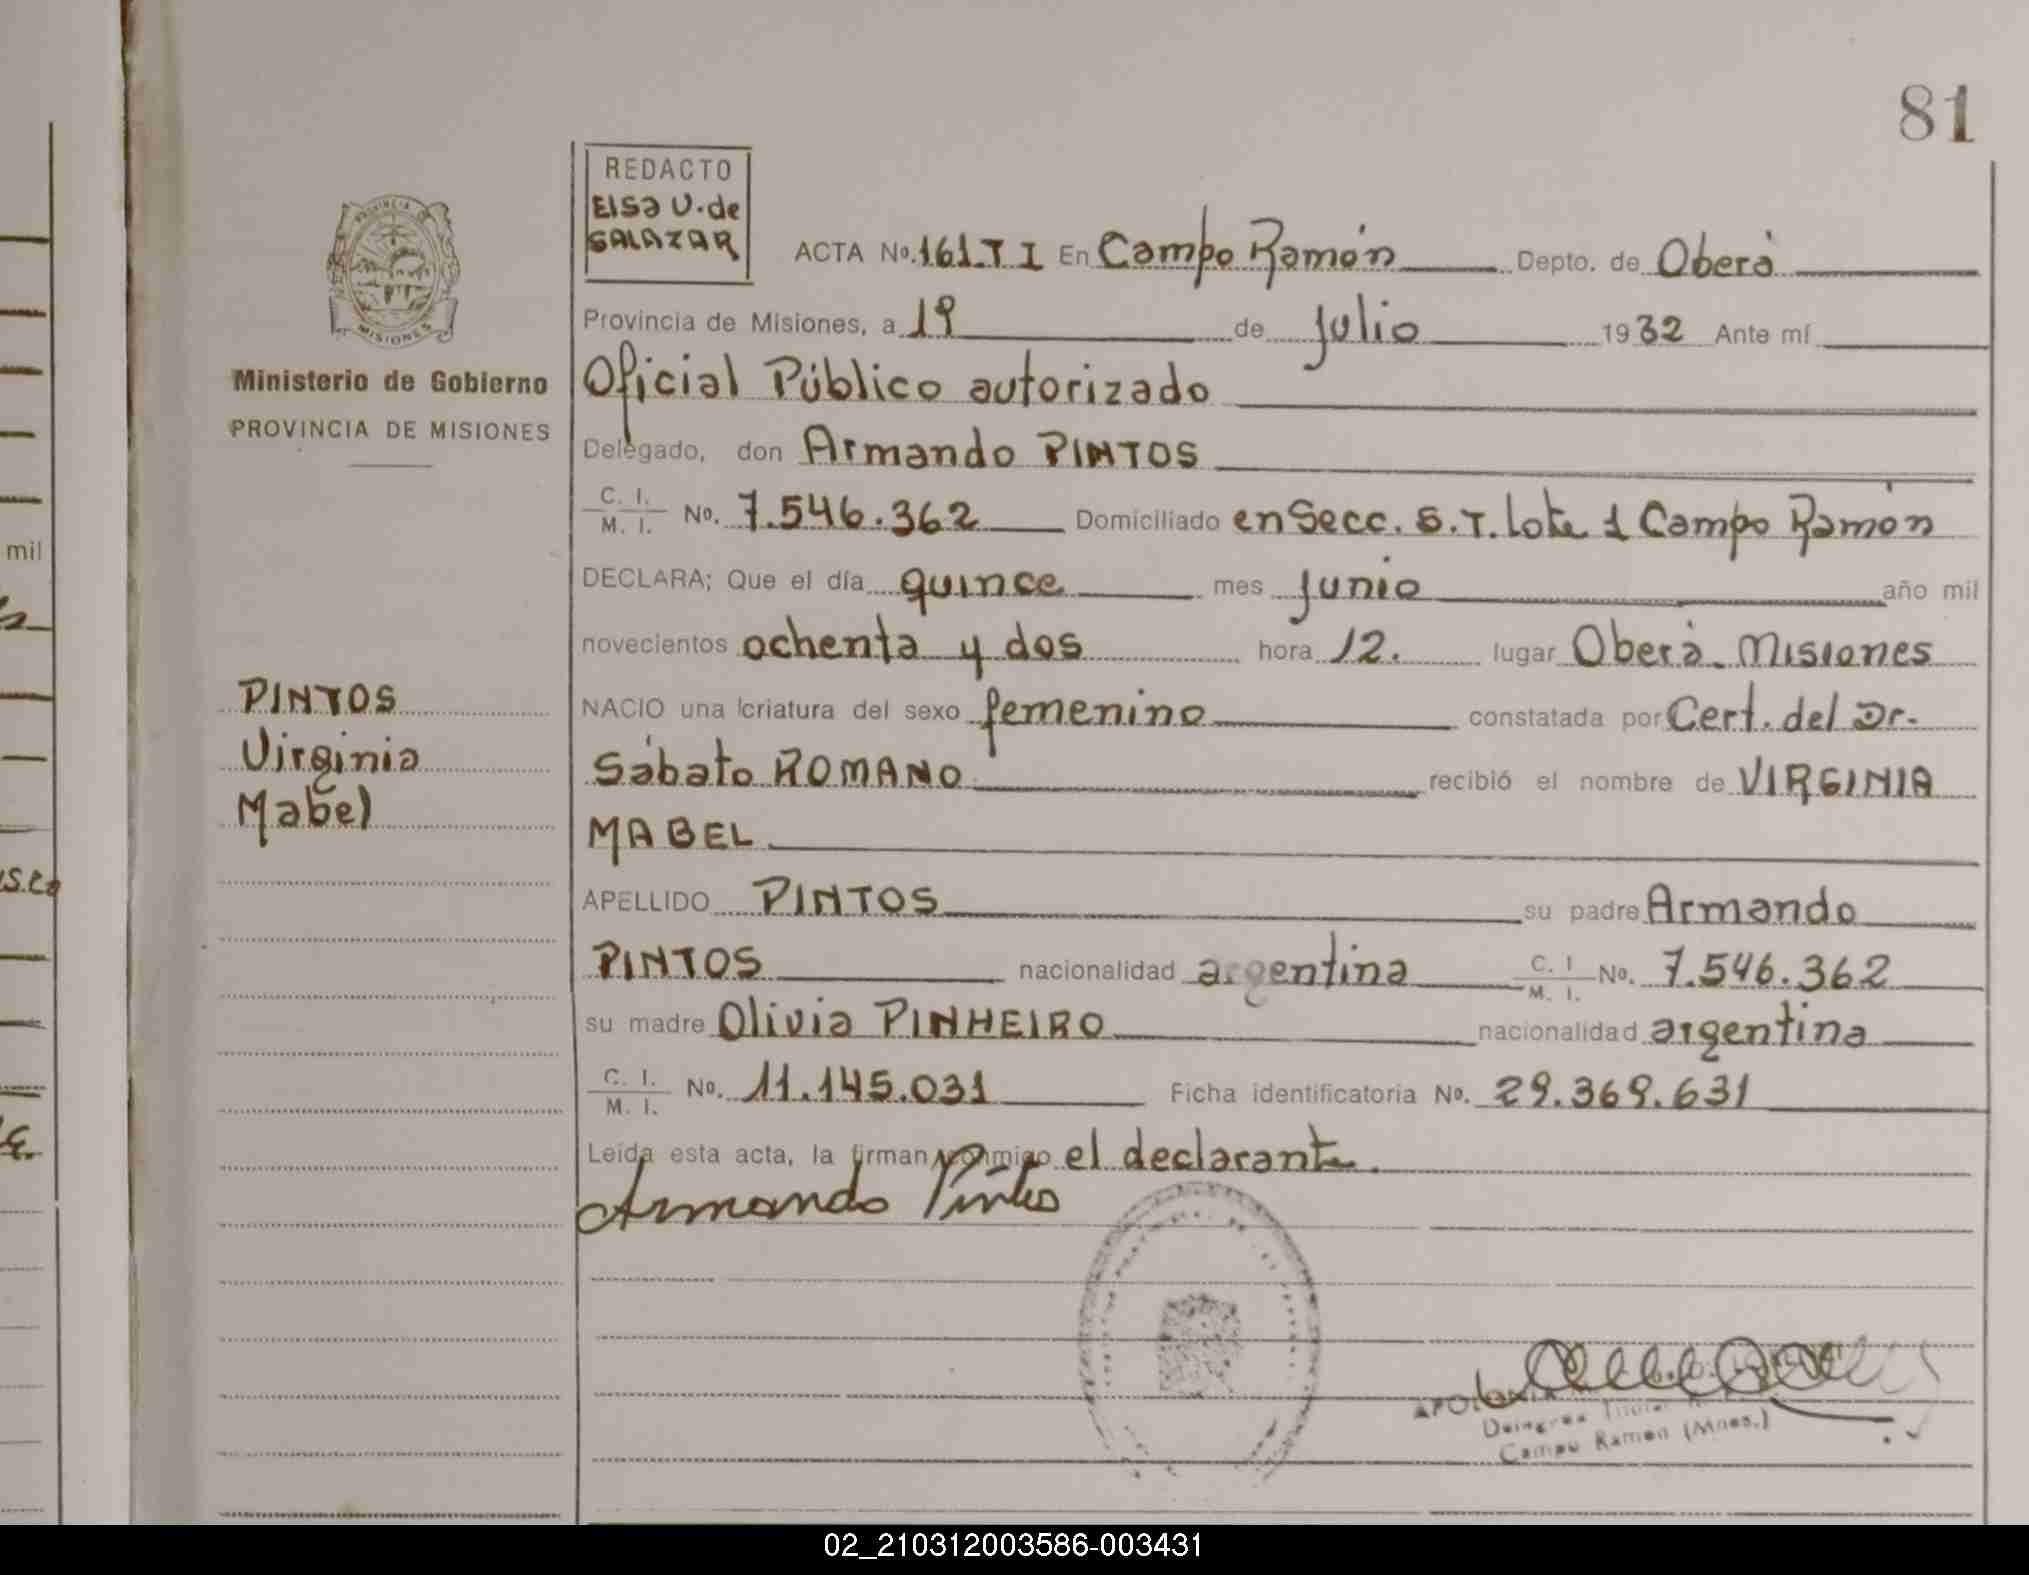 81
REDACTO
Elsa V. de
SALAZAR
ACTA No. 161.T I En Campo Ramón Depto. de Oberá
Provincia de Misiones, a 19 de Julio 1982 Ante mí
Ministerio de Gobierno
PROVINCIA DE MISIONES
Oficial Público autorizado
Delegado, don Armando PINTOS
C. I.
M. I. No. 7.546.362 Domiciliado en Secc. S.T. Lote 1 Campo Ramón
mil
DECLARA; Que el día quince mes junio año mil
novecientos ochenta y dos hora 12. lugar Oberá Misiones
PINTOS
Virginia
Mabel
NACIO una criatura del sexo femenino constatada por Cert. del Dr.
Sábato ROMANO recibió el nombre de VIRGINIA
MABEL
APELLIDO PINTOS su padre Armando
PINTOS nacionalidad argentina C. I. M. I. No. 7.546.362
su madre Olivia PINHEIRO nacionalidad argentina
C. I.
M. I. No. 11.145.031 Ficha identificatoria No. 29.369.631
Leída esta acta, la firman conmigo el declarante.
Armando Pintos
Campo Ramon (Mnes.)
02_210312003586-003431